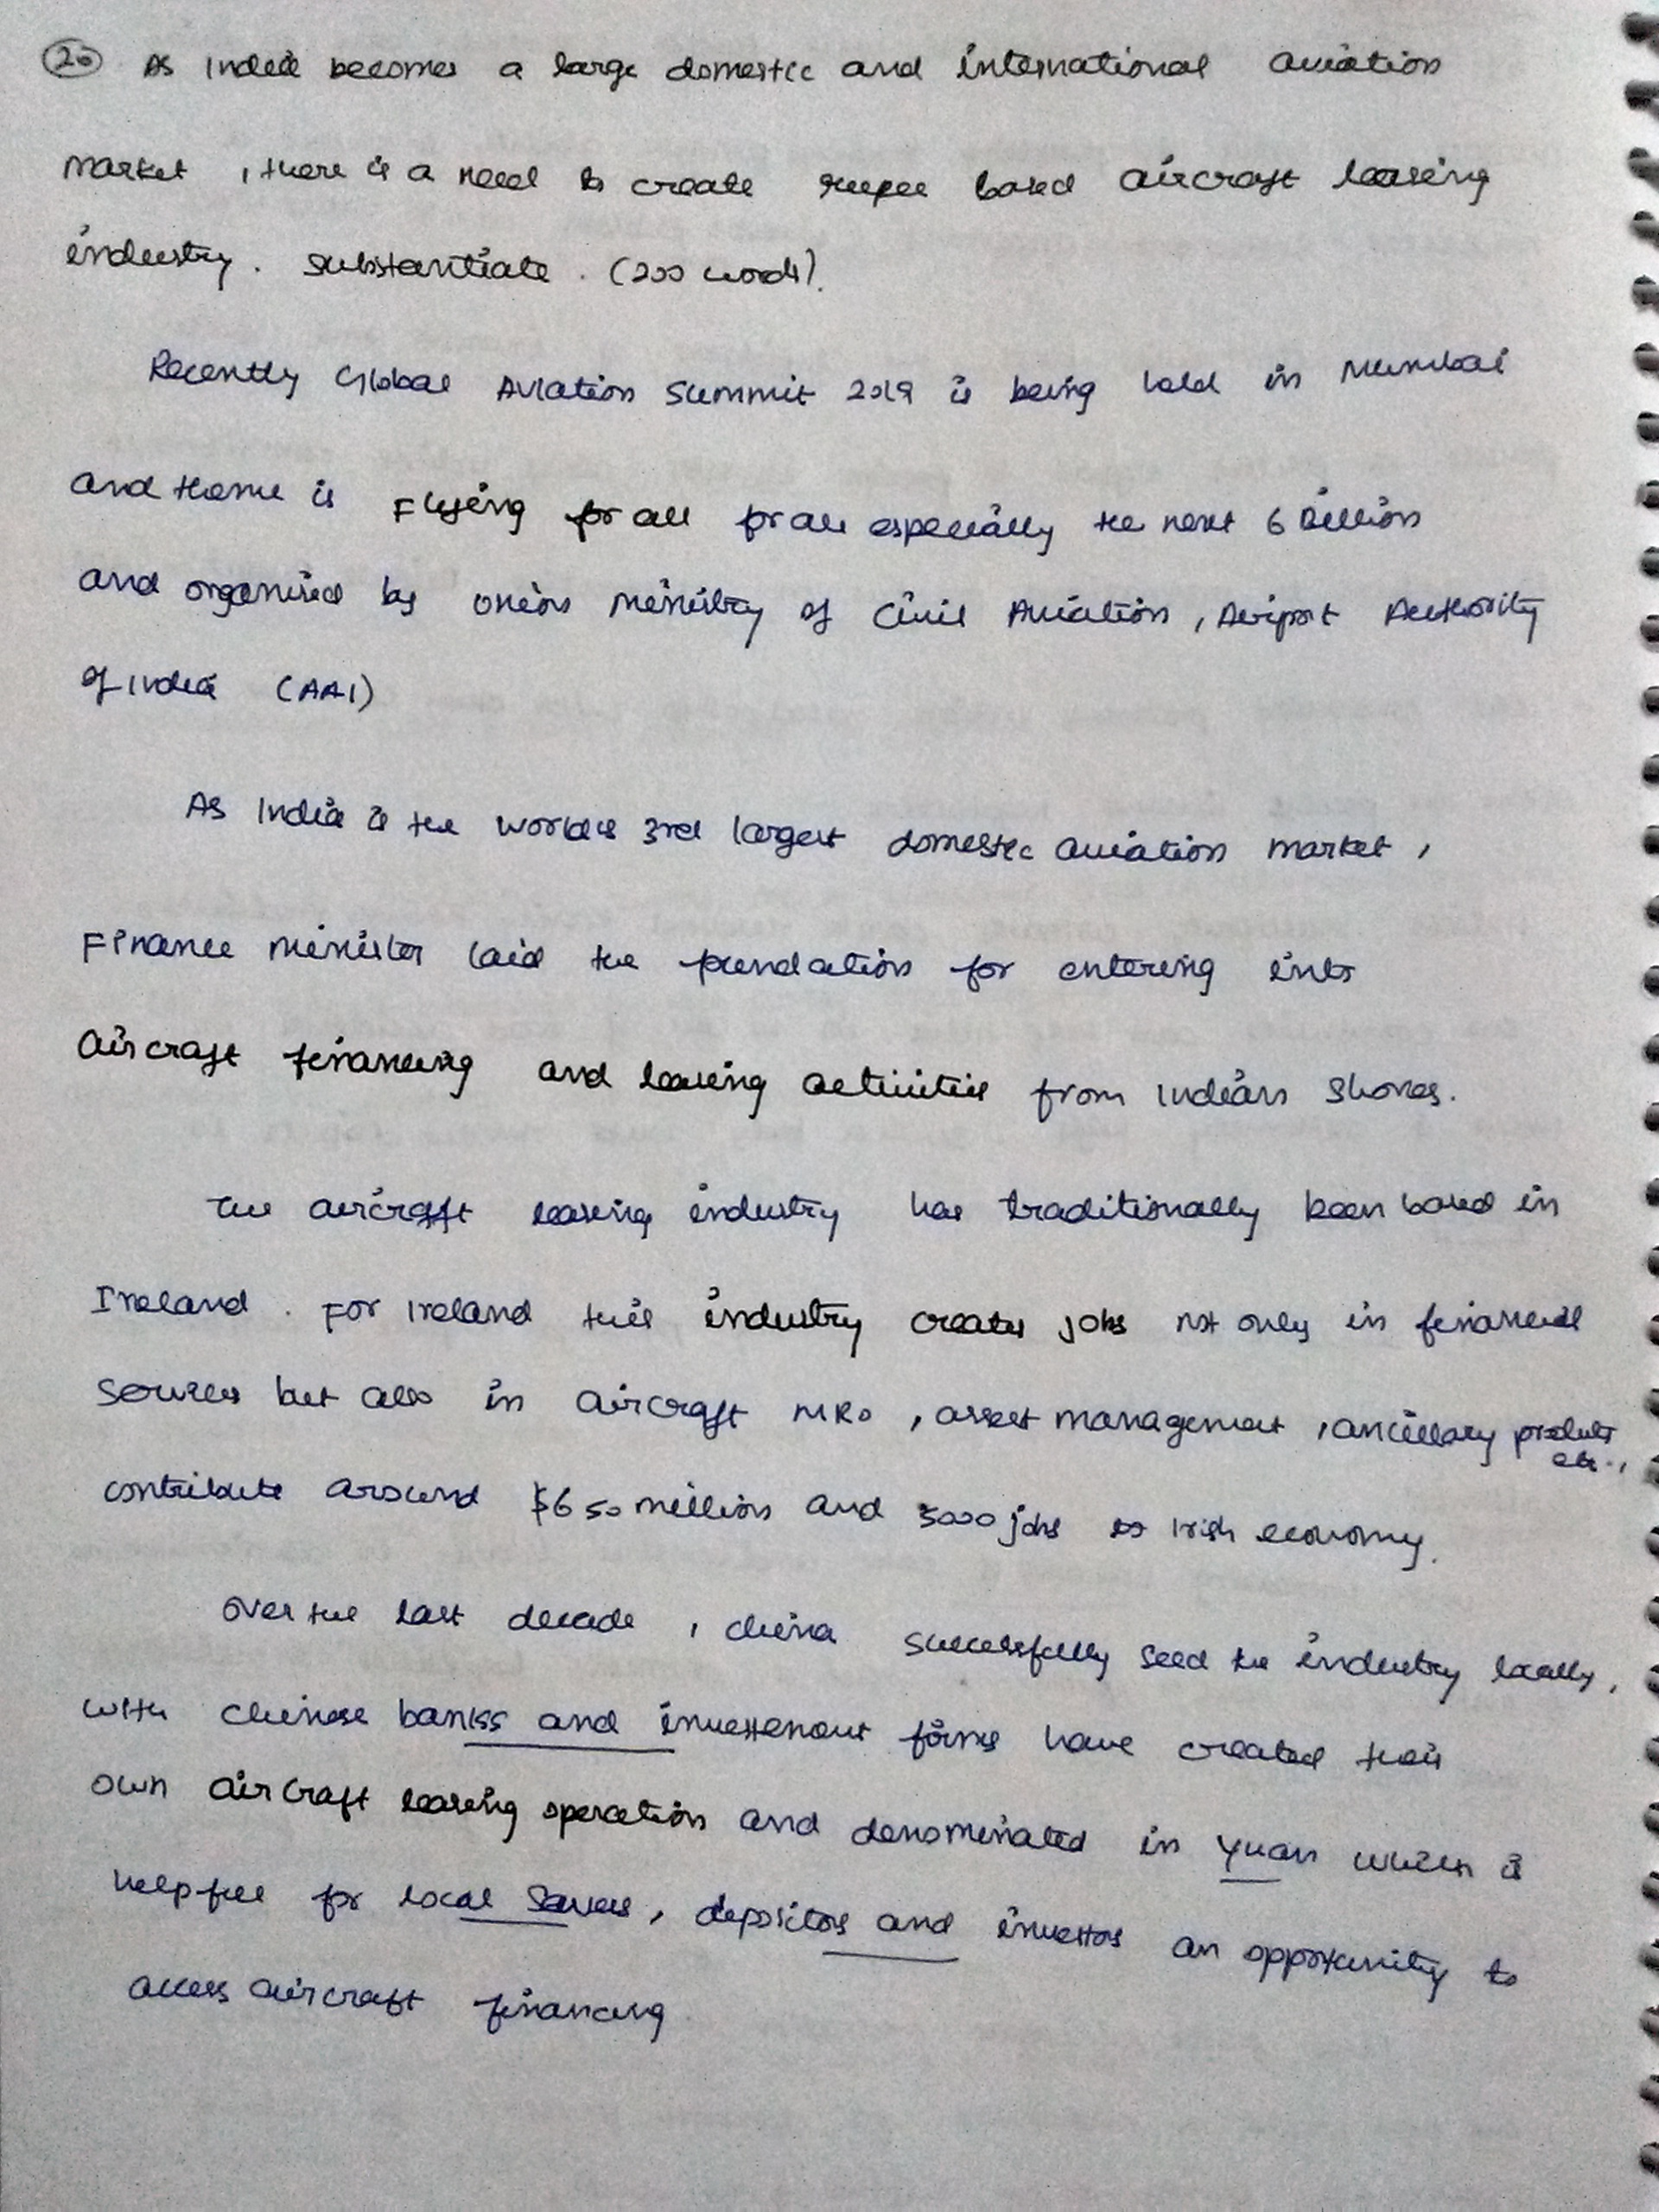 20 As India becomes a large domestic and international aviation
market, there is a need to create rupee based aircraft leasing
industry. Substantiate. (200 words).
Recently Global Aviation Summit 2019 is being held in Mumbai
and theme is Flying for all for all especially the next 6 Billion
and organised by Union Ministry of Civil Aviation, Airport Authority
of India (AAI)
As India is the world's 3rd largest domestic aviation market,
Finance Minister laid the foundation for entering into
Aircraft financing and leasing activities from Indian shores.
The aircraft leasing industry has traditionally been based in
Ireland. For Ireland this industry creates jobs not only in financial
services but also in aircraft MRO, asset management, ancillary products
etc.,
contribute around $650 million and 5000 jobs to Irish economy.
Over the last decade, China successfully seed the industry locally,
with Chinese banks and investment firms have created their
own aircraft leasing operation and denominated in Yuan which is
helpful for local savers, depositors and investors an opportunity to
access aircraft financing